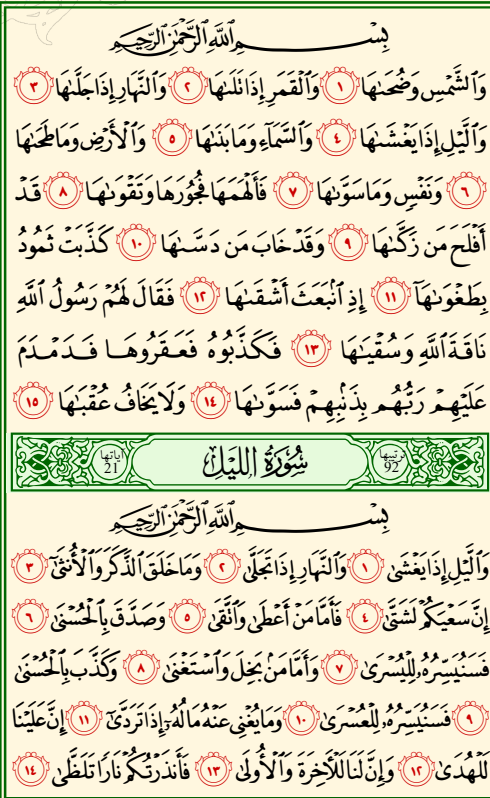 بِسْمِ اللَّهِ الرَّحْمَٰنِ الرَّحِيمِ
وَٱلشَّمْسِ وَضُحَىٰهَا ١ وَٱلْقَمَرِ إِذَا تَلَىٰهَا ٢ وَٱلنَّهَارِ إِذَا جَلَّىٰهَا ٣
وَٱلَّيْلِ إِذَا يَغْشَىٰهَا ٤ وَٱلسَّمَآءِ وَمَا بَنَىٰهَا ٥ وَٱلْأَرْضِ وَمَا طَحَىٰهَا
٦ وَنَفْسٍ وَمَا سَوَّىٰهَا ٧ فَأَلْهَمَهَا فُجُورَهَا وَتَقْوَىٰهَا ٨ قَدْ
أَفْلَحَ مَن زَكَّىٰهَا ٩ وَقَدْ خَابَ مَن دَسَّىٰهَا ١٠ كَذَّبَتْ ثَمُودُ
بِطَغْوَىٰهَآ ١١ إِذِ ٱنۢبَعَثَ أَشْقَىٰهَا ١٢ فَقَالَ لَهُمْ رَسُولُ ٱللَّهِ
نَاقَةَ ٱللَّهِ وَسُقْيَٰهَا ١٣ فَكَذَّبُوهُ فَعَقَرُوهَا فَدَمْدَمَ
عَلَيْهِمْ رَبُّهُم بِذَنۢبِهِمْ فَسَوَّىٰهَا ١٤ وَلَا يَخَافُ عُقْبَٰهَا ١٥
ترتيبها 92 سُورَةُ اللَّيْلِ آياتها 21
بِسْمِ اللَّهِ الرَّحْمَٰنِ الرَّحِيمِ
وَٱلَّيْلِ إِذَا يَغْشَىٰ ١ وَٱلنَّهَارِ إِذَا تَجَلَّىٰ ٢ وَمَا خَلَقَ ٱلذَّكَرَ وَٱلْأُنثَىٰٓ ٣
إِنَّ سَعْيَكُمْ لَشَتَّىٰ ٤ فَأَمَّا مَنْ أَعْطَىٰ وَٱتَّقَىٰ ٥ وَصَدَّقَ بِٱلْحُسْنَىٰ ٦
فَسَنُيَسِّرُهُۥ لِلْيُسْرَىٰ ٧ وَأَمَّا مَنۢ بَخِلَ وَٱسْتَغْنَىٰ ٨ وَكَذَّبَ بِٱلْحُسْنَىٰ
٩ فَسَنُيَسِّرُهُۥ لِلْعُسْرَىٰ ١٠ وَمَا يُغْنِى عَنْهُ مَالُهُۥٓ إِذَا تَرَدَّىٰٓ ١١ إِنَّ عَلَيْنَا
لَلْهُدَىٰ ١٢ وَإِنَّ لَنَا لَلْـَٔاخِرَةَ وَٱلْأُولَىٰ ١٣ فَأَنذَرْتُكُمْ نَارًا تَلَظَّىٰ ١٤